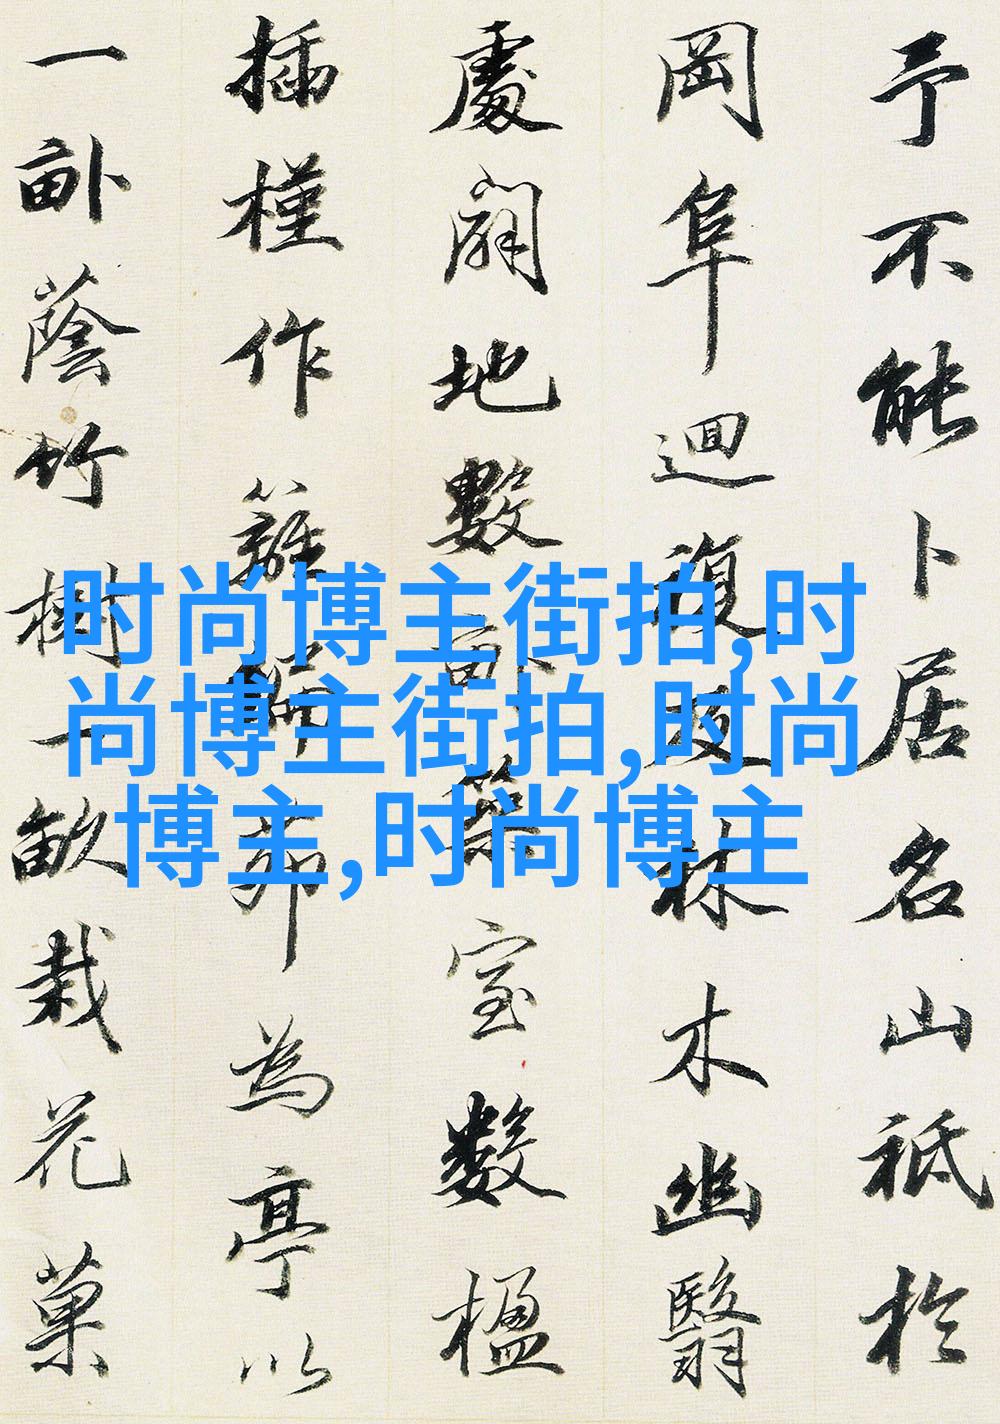 予不能卜居名山祗於
岡阜迴複及林木幽翳
處闢地數畝築室數楹
插槿作籬編茆為亭以
一畝蔭竹樹一畝栽花菓
时尚博主街拍,时
尚博主街拍,时尚
博主,时尚博主